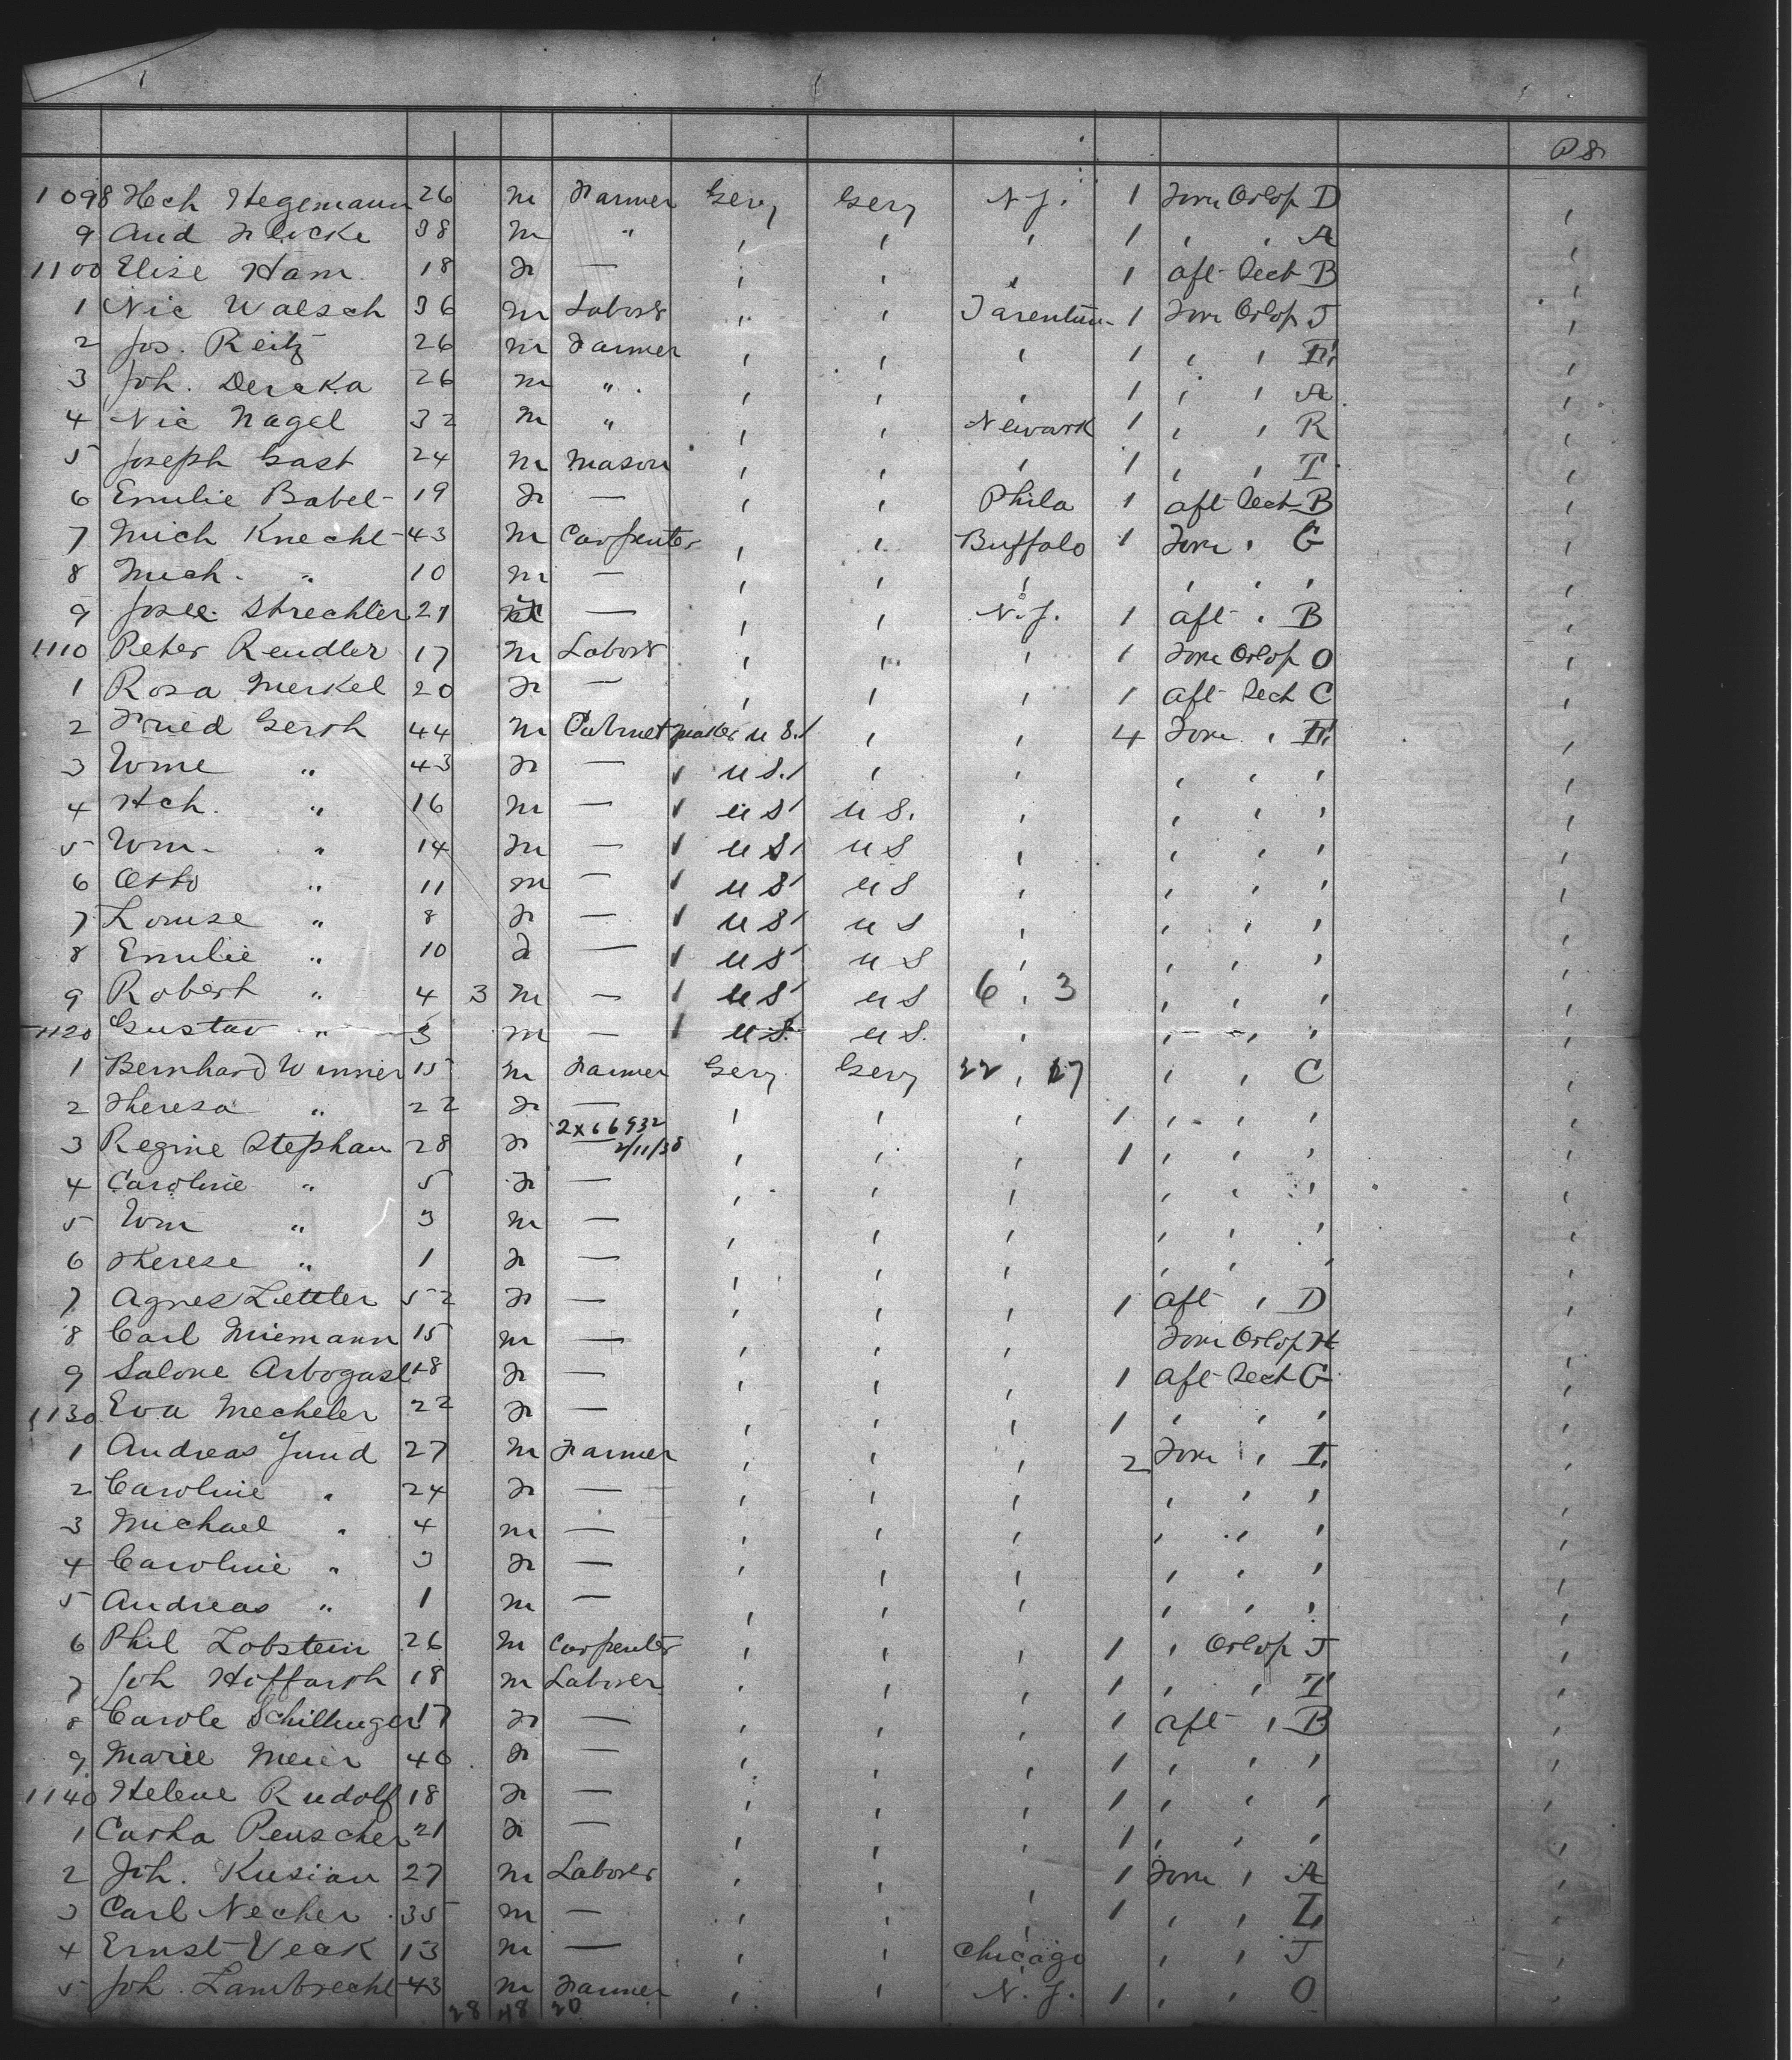 P 8
1098 Hch Hegemann 26 m Farmer Gery Gery N.J. 1 Forw Orlop D
9 And Flicke 38 m " ' ' ' 1 ' ' A
1100 Elise Ham 18 F — ' ' ' 1 aft Deck B
1 Nic Walsch 36 m Laborr ' ' Tarentum 1 Forw Orlop J
2 Jos. Reitz 26 m Farmer ' ' ' 1 ' '
3 Joh. Dereka 26 m " ' ' ' 1 ' ' A
4 Nic Nagel 32 m " ' ' Newark 1 ' ' R
5 Joseph Gast 24 m Mason ' ' ' 1 ' ' T
6 Emilie Babel 19 F — ' ' Phila 1 aft Deck B
7 Mich Knecht 43 m Carpenter ' ' Buffalo 1 Forw ' G
8 Mich. " 10 m — ' ' ' ' ' '
9 Strechler 21 — ' ' N.J. 1 aft ' B
1110 Peter Rendler 17 m Laborr ' ' ' 1 Forw Orlop O
1 Rosa Merkel 20 F — ' ' ' 1 aft Deck C
2 Fried Gerth 44 m Cabinet maker U S. ' ' 4 Forw '
3 Wme " 43 F — U S. ' ' ' ' '
4 Hch. " 16 m — U S U S. ' ' ' '
5 Wm. " 14 m — U S U S ' ' ' '
6 Otto " 11 m — U S U S ' ' ' '
7 Louise " 8 F — U S U S ' ' ' '
8 Emilie " 10 F — U S U S ' ' ' '
9 Robert " 4 3 m — U S U S 6 ' 3 ' ' '
1120 Gustav " 3 m — U S. U S. ' ' ' '
1 Bernhard Winner 15 m Farmer Gery Gery 22 ' 27 ' ' C
2 Theresa " 22 F — ' ' ' 1 ' ' '
2 x 66932
3 Regine Stephan 28 F — 2/11/38 ' ' ' 1 ' ' '
4 Caroline " 5 F — ' ' ' ' ' '
5 Wm " 3 m — ' ' ' ' ' '
6 Therese " 1 F — ' ' ' ' ' '
7 Agnes 52 F — ' ' ' 1 aft ' D
8 Carl Niemann 15 m — ' ' ' Forw Orlop H
9 Salone Arbogast 18 F — ' ' ' 1 aft Deck G
1130 Eva Mecheler 22 F — ' ' ' 1 ' ' '
1 Andreas Jund 27 m Farmer ' ' ' 2 Forw ' I
2 Caroline " 24 F — ' ' ' ' ' '
3 Michael " 4 m — ' ' ' ' ' '
4 Caroline " 3 F — ' ' ' ' ' '
5 Andreas " 1 m — ' ' ' ' ' '
6 Phil Lobstein 26 m Carpenter ' ' ' 1 ' Orlop J
7 Joh Hoffarth 18 m Laborer ' ' ' 1 ' ' T
8 Carole Schillinger 17 F — ' ' ' 1 aft ' B
9 Marie Meier 46 F — ' ' ' 1 ' ' '
1140 Helene Rudolf 18 F — ' ' ' 1 ' ' '
1 Catha Penscher 21 F — ' ' ' 1 ' ' '
2 Joh. Kusian 27 m Laborer ' ' ' 1 Forw ' A
3 Carl Necher 35 m — ' ' ' 1 ' ' L
4 Ernst Veak 13 m — ' ' Chicago ' ' J
5 Joh. Lambrecht 43 m Farmer ' ' N.J. 1 ' ' O
28 48 20